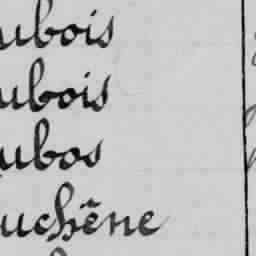 ubois
ubois
ubos
uchêne